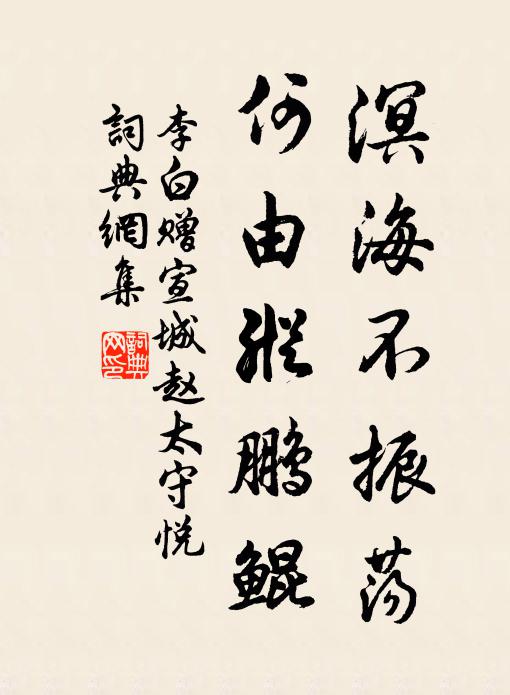 溟海不振荡
何由縱鹏鲲
李白赠宣城赵太守悦
詞典網集
詞典网印